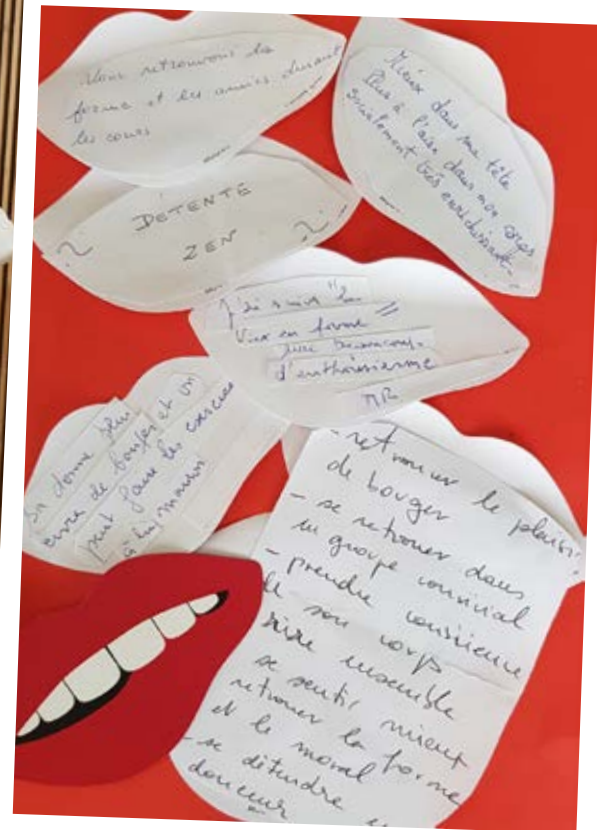 Nous retrouvons la
forme et les amies durant
les cours
Mieux dans ma tête
Plus à l'aise dans mon corps
socialement très enrichissant
DÉTENTE
ZEN
J'ai suivi "la
Vieux en forme"
avec beaucoup
d'enthousiasme
MR
on donne plus
envie de bouger et on
peut faire les exercices
à la maison
- retrouver le plaisir
de bouger
- se retrouver dans
un groupe convivial
- prendre conscience
de son corps
rire ensemble
se sentir mieux
retrouver la forme
et le moral
- se détendre en
douceur